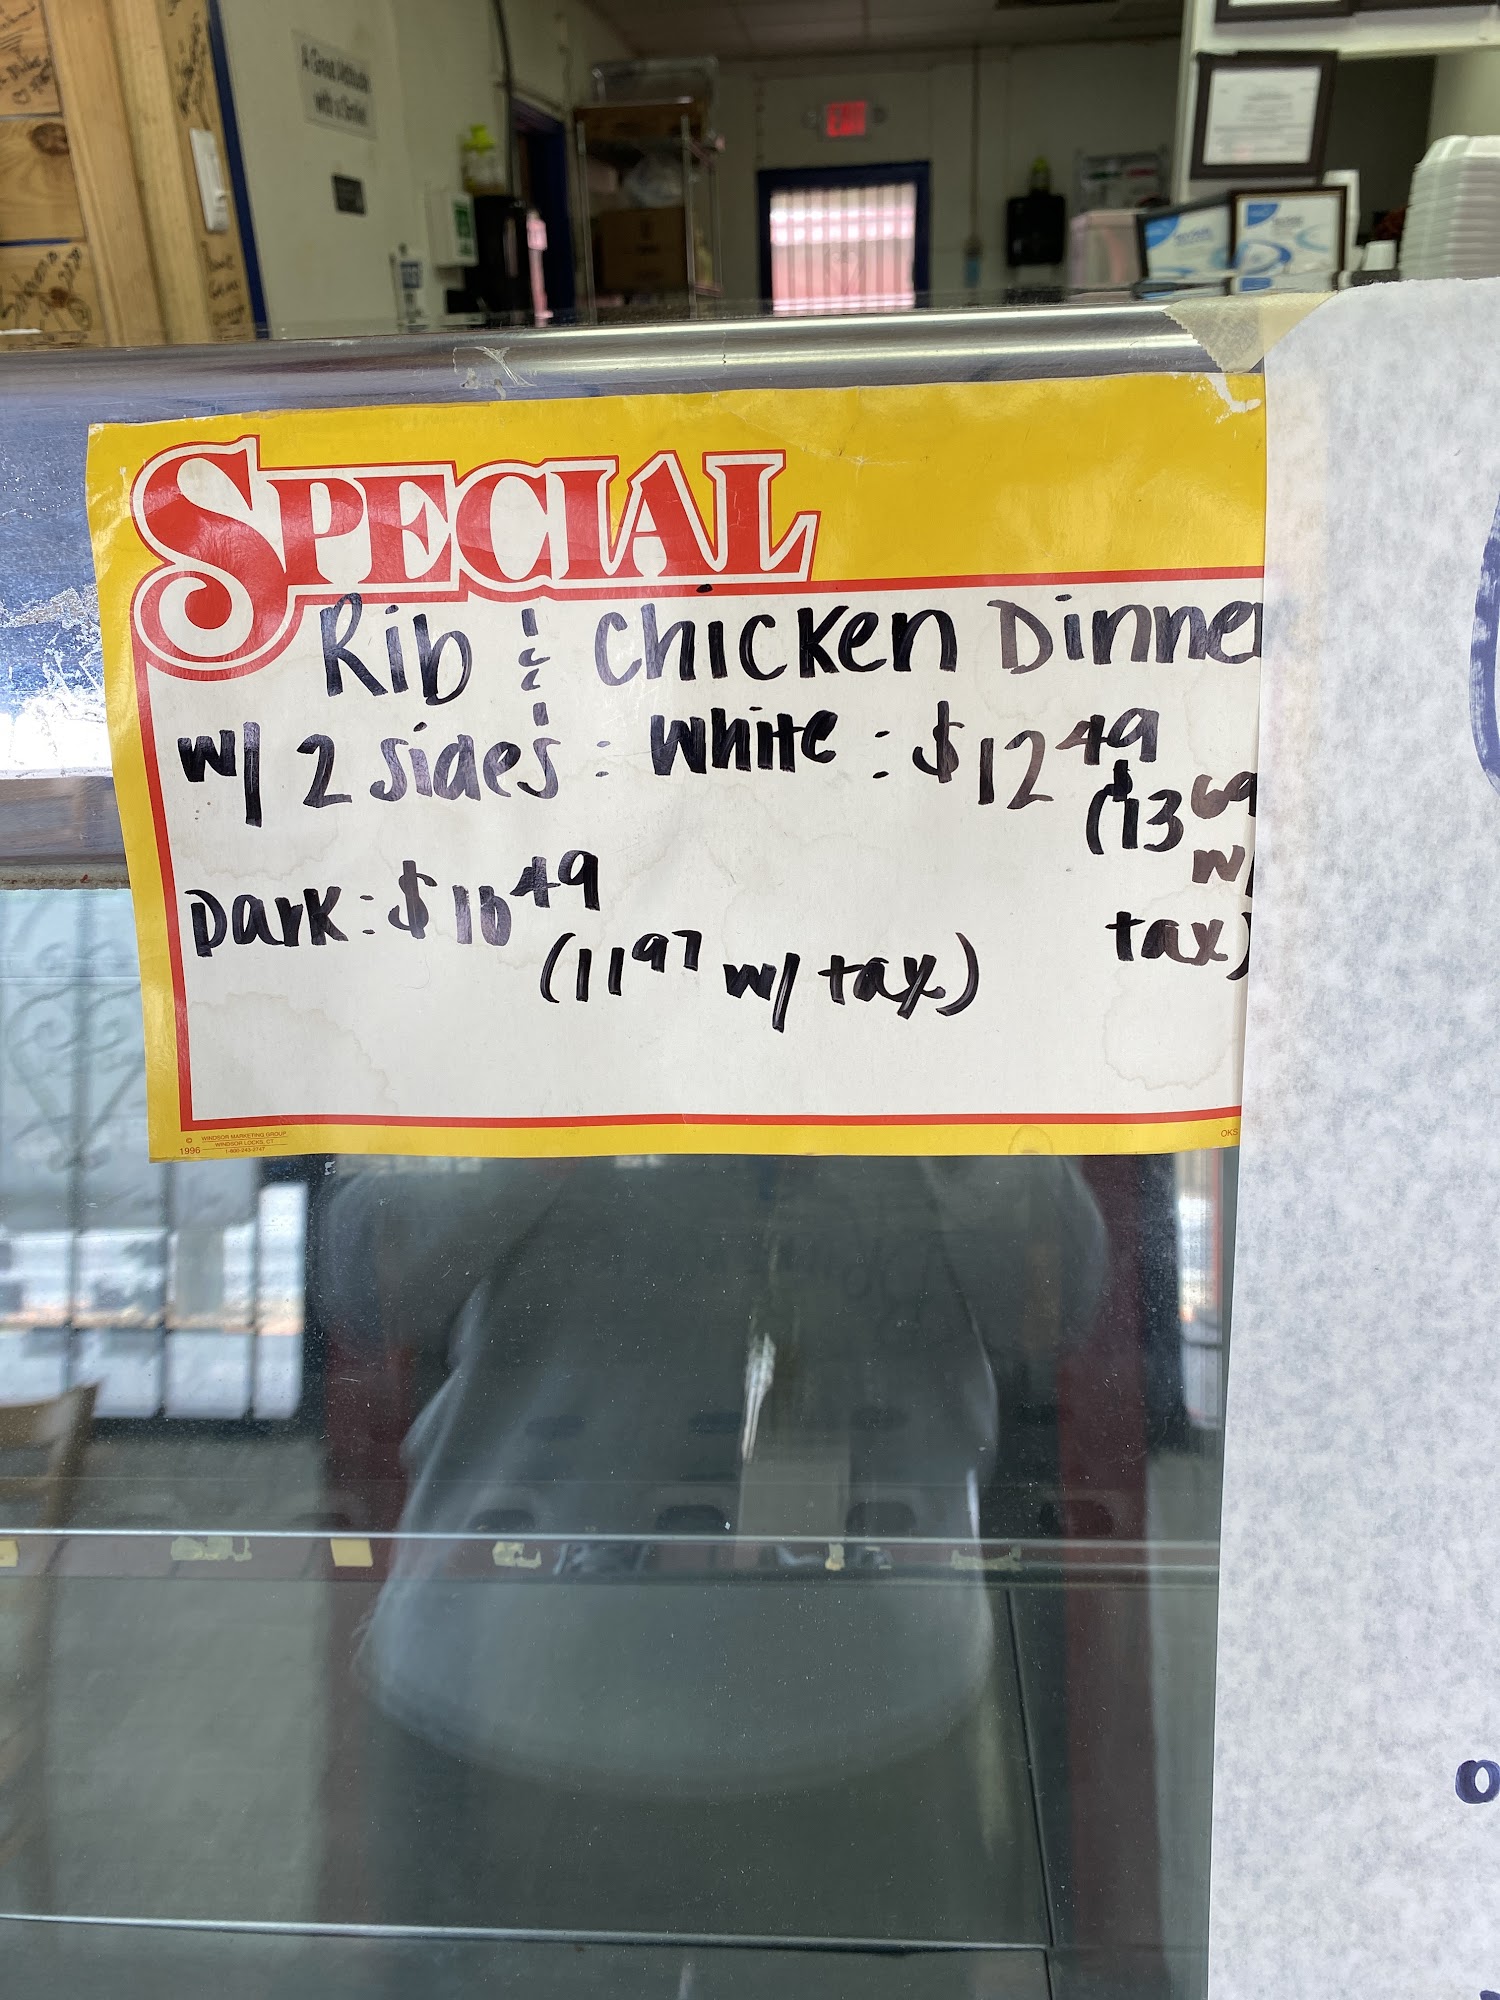 A Great Attitude
with a Smile!
EXIT
SPECIAL
Rib & Chicken Dinner
w/ 2 sides: White: $12 49
($13 69
w/
tax)
Dark: $10 49
(11 97 w/ tax)
© WINDSOR MARKETING GROUP
WINDSOR LOCKS, CT
1996 1-800-243-2747
OKS